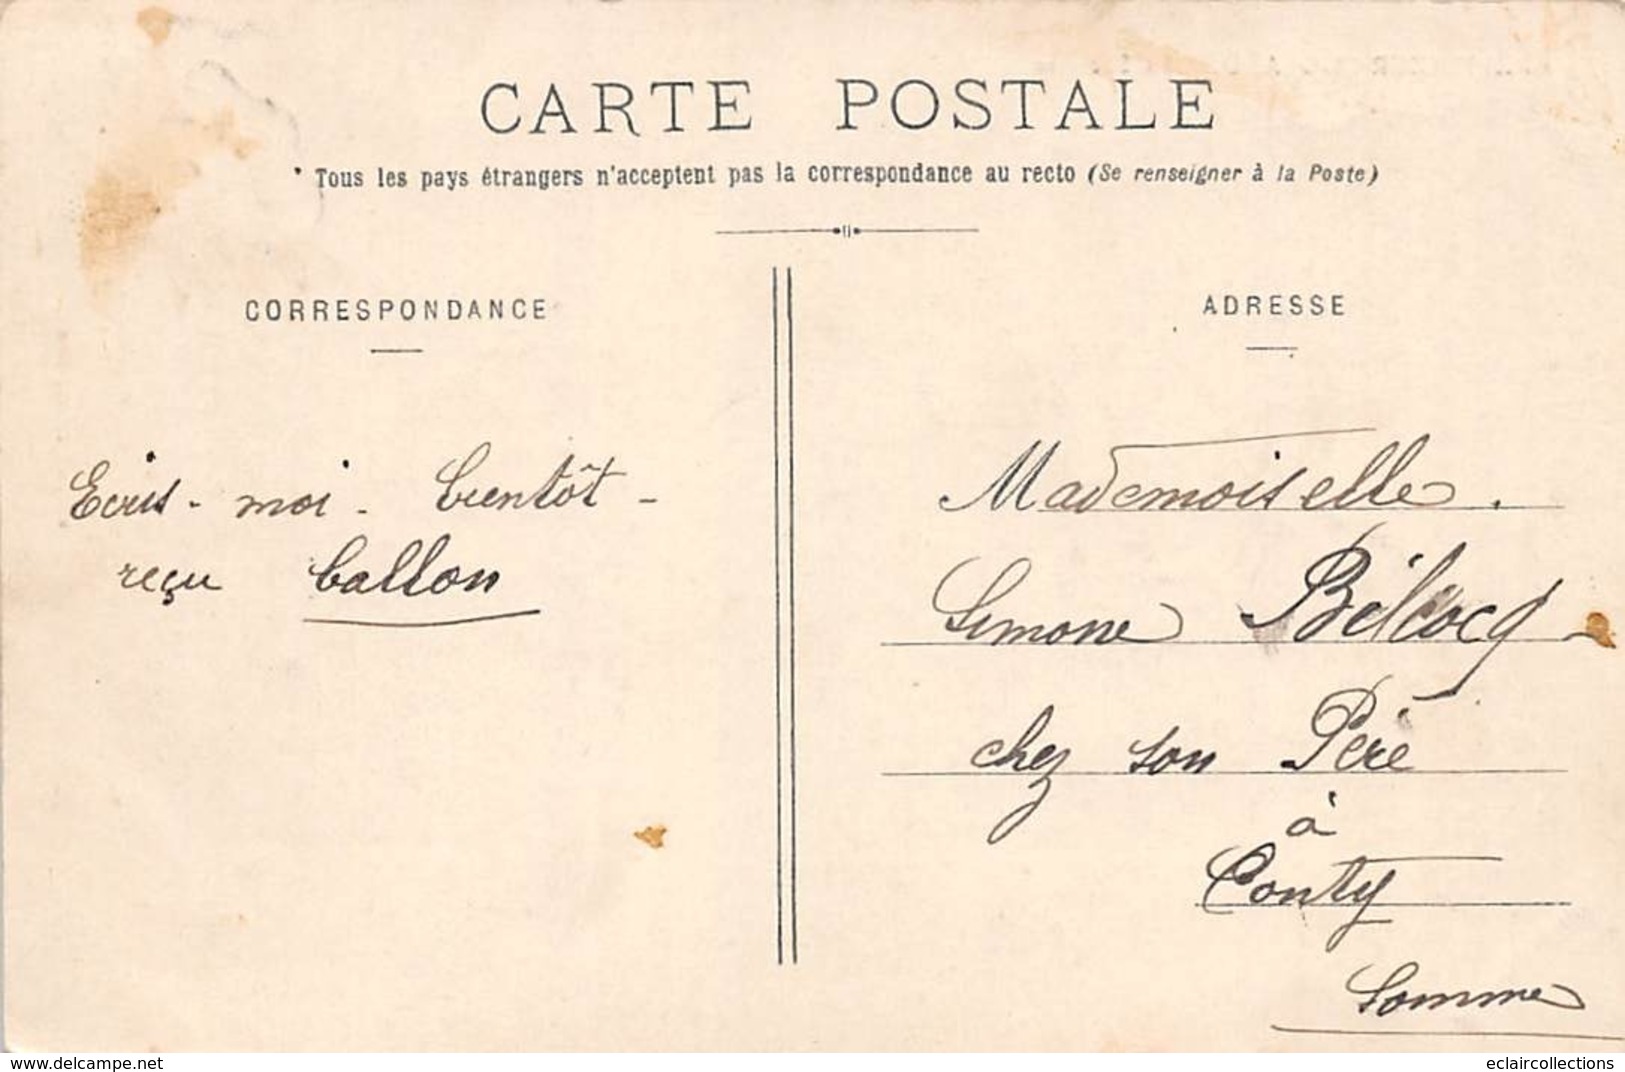 CARTE POSTALE
Tous les pays étrangers n'acceptent pas la correspondance au recto (Se renseigner à la Poste)
CORRESPONDANCE
Ecris-moi. bientôt -
reçu ballon
ADRESSE
Mademoiselle.
Simone Bélcocq
chez son Père
à
Conty
Somme
www.delcampe.net
eclaircollections